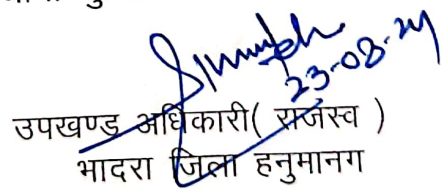 23-08-24
उपखण्ड अधिकारी( राजस्व )
भादरा जिला हनुमानग